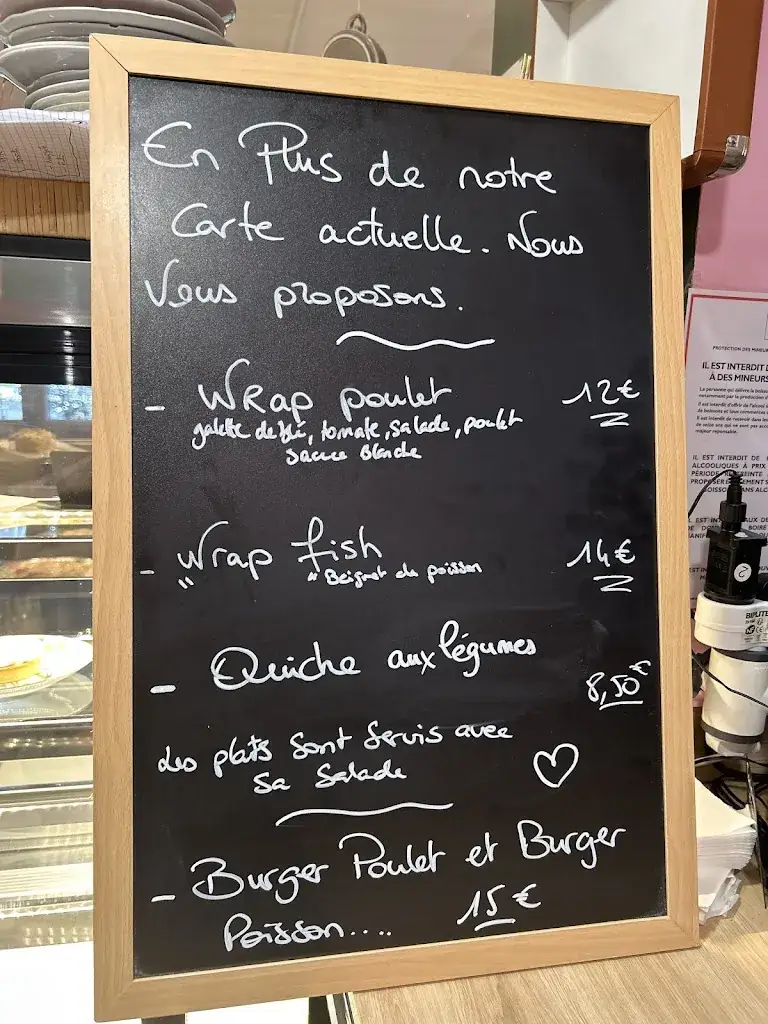 En Plus de notre
Carte actuelle. Nous
Vous proposons.
- Wrap poulet 12€
galette de blé, tomate, salade, poulet
sauce Blanche
- Wrap fish 14€
" Beignet de poisson
- Quiche aux légumes
8,50€
Les plats sont servis avec
sa salade
- Burger Poulet et Burger
Poisson.... 15€
PROTECTION DES MINEURS
IL EST INTERDIT D
À DES MINEURS
IL EST INTERDIT DE
ALCOOLIQUES À PRIX
BIPLITE
2